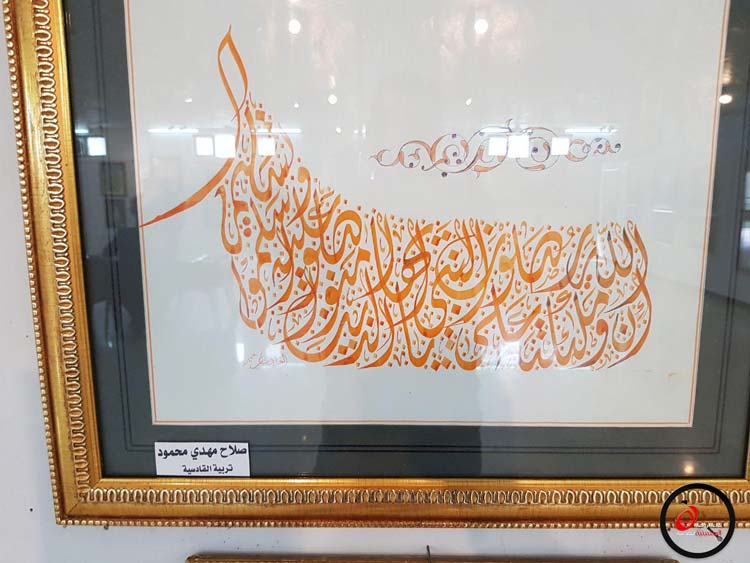 إن الله وملئكته يصلون على النبي يأيها الذين آمنوا صلوا عليه وسلموا تسليما
صلاح مهدي محمود
تربية القادسية